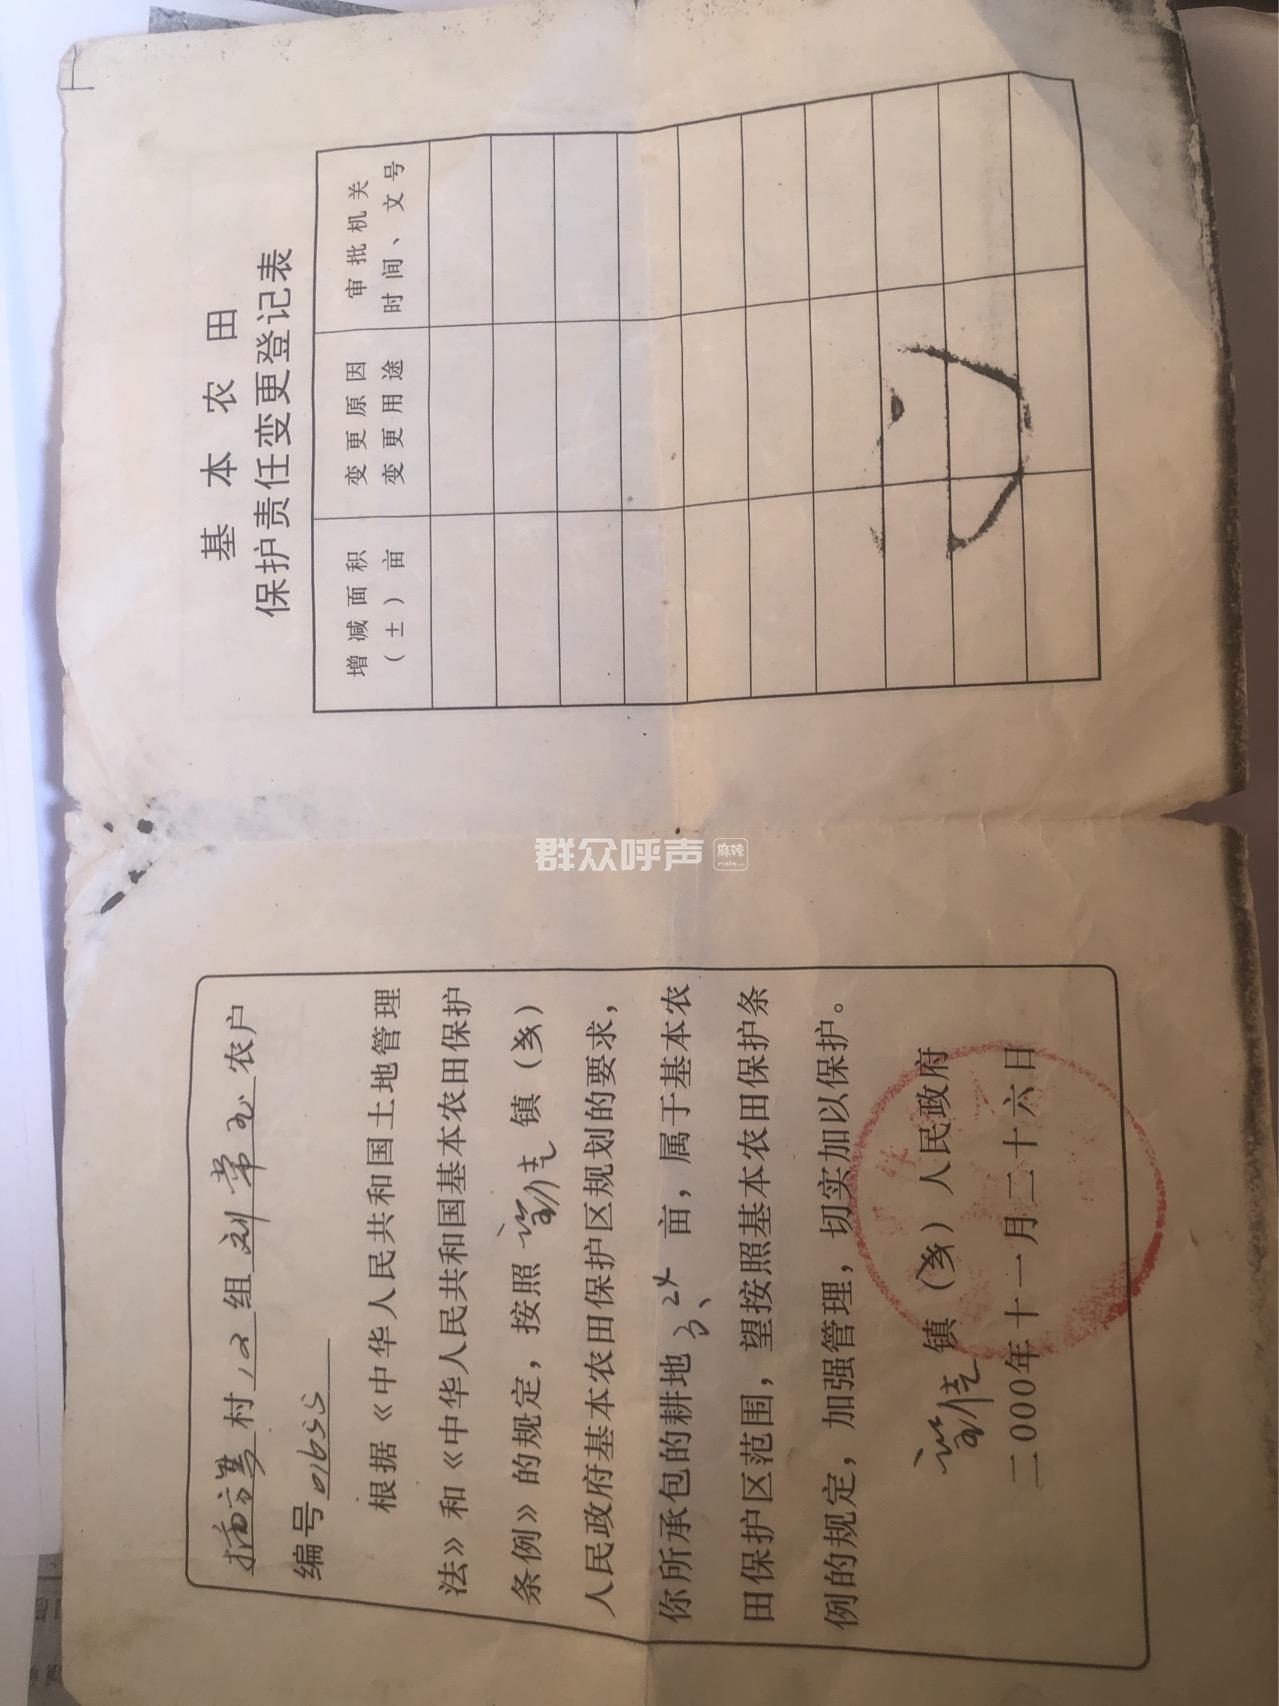 村12组刘常玉农户
编号01655
根据《中华人民共和国土地管理
法》和《中华人民共和国基本农田保护
条例》的规定，按照 镇（乡）
人民政府基本农田保护区规划的要求，
你所承包的耕地 亩，属于基本农
田保护区范围，望按照基本农田保护条
例的规定，加强管理，切实加以保护。
镇（乡）人民政府
二000年十一月二十六日
基本农田
保护责任变更登记表
增减面积
（±）亩
变更原因
变更用途
审批机关
时间、文号
群众呼声
麻辣